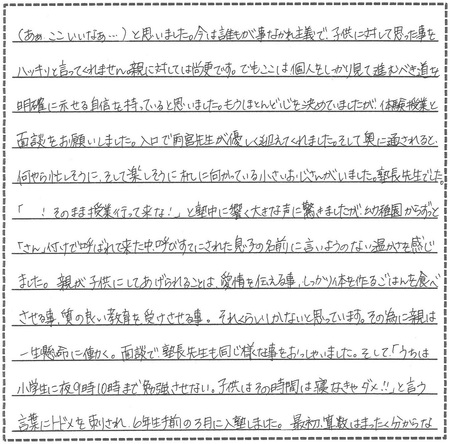 (あぁ ここいいなぁ…)と思いました。今は誰もが事なかれ主義で、子供に対して思った事を
ハッキリと言ってくれません。親に対しては尚更です。でもここは個人をしっかり見て進むべき道を
明確に示せる自信を持っていると思いました。もうほとんど心を決めていましたが、体験授業と
面談をお願いしました。入口で雨宮先生が優しく迎えてくれました。そして奥に通されると、
何やら忙しそうに、そして楽しそうに机に向かっている小さいおじさんがいました。塾長先生でした。
「 ! そのまま授業行って来な!」と塾中に響く大きな声に驚きましたが、幼稚園からずっと
「さん」付けで呼ばれて来た中、呼びすてにされた息子の名前に言いようのない温かさを感じ
ました。親が子供にしてあげられることは、愛情を伝える事、しっかり体を作るごはんを食べ
させる事、質の良い教育を受けさせる事。それくらいしかないと思っています。その為に親は
一生懸命に働く。面談で塾長先生も同じ様な事をおっしゃいました。そして「うちは
小学生に夜9時10時まで勉強させない。子供はその時間は寝なきゃダメ!!」と言う
言葉にトドメを刺され、6年生手前の3月に入塾しました。最初、算数はまったく分からな